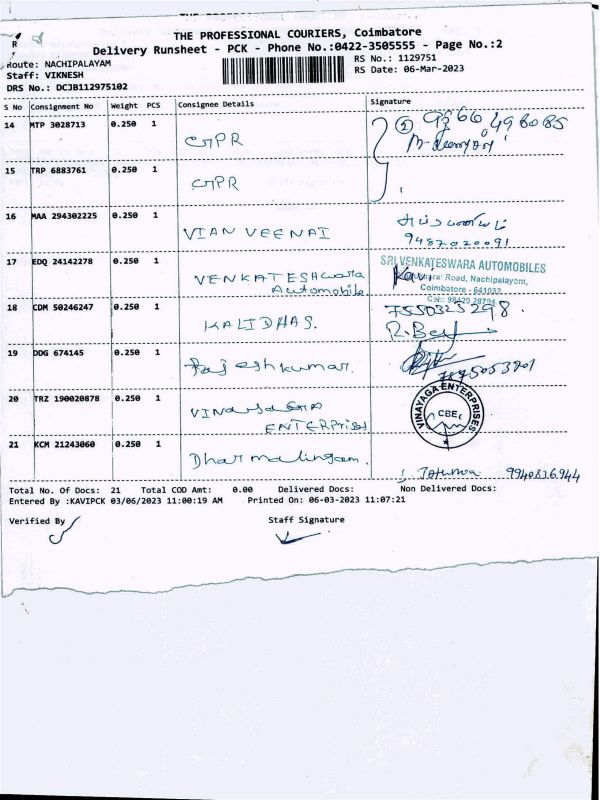 THE PROFESSIONAL COURIERS, Coimbatore
Delivery Runsheet - PCK - Phone No.:0422-3505555 - Page No.:2
Route: NACHIPALAYAM
RS No.: 1129751
Staff: VIKNESH
RS Date: 06-Mar-2023
DRS No.: DCJB112975102
S No Consignment No Weight PCS Consignee Details Signature
14 MTP 3028713 0.250 1 GPR
15 TRP 6883761 0.250 1 GPR
16 MAA 294302225 0.250 1 VIAN VEENAI
9487020091
17 EDQ 24142278 0.250 1 VENKATESHwara Automobile
SRI VENKATESWARA AUTOMOBILES
Road, Nachipalayam,
Coimbatore - 641032
Cell: 98429 28794
18 CDM 50246247 0.250 1 KALIDHAS.
7550325298.
19 DDG 674145 0.250 1 Rajeshkumar.
20 TRZ 190020878 0.250 1 VINAYAGA ENTERPrises
VINAYAGA ENTERPRISES CBE
21 KCM 21243060 0.250 1 Dharmalingam.
9940836944
Total No. Of Docs: 21 Total COD Amt: 0.00 Delivered Docs: Non Delivered Docs:
Entered By :KAVIPCK 03/06/2023 11:00:19 AM Printed On: 06-03-2023 11:07:21
Verified By Staff Signature